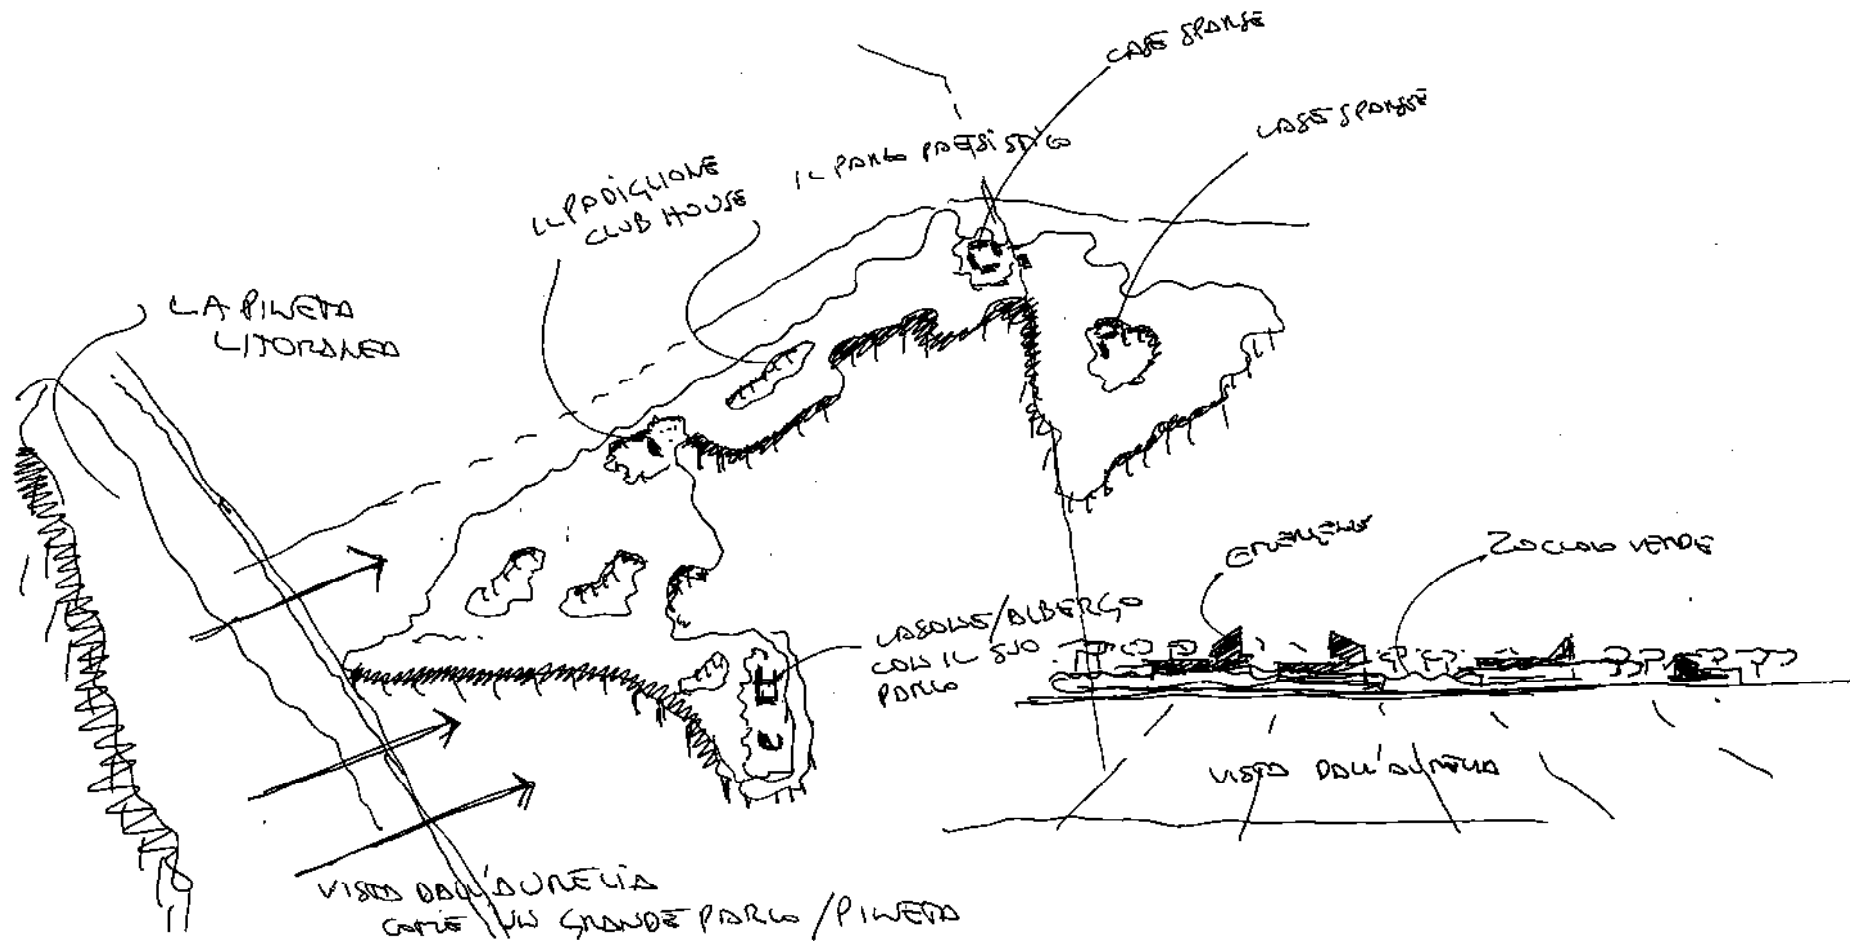 CASE SPARSE
CASE SPARSE
IL PARCO PAESISTICO
IL PADIGLIONE
CLUB HOUSE
LA PINETA
LITORANEA
ZOCCOLO VERDE
/ALBERGO
CON IL SUO
PARCO
VISTA DALL'AURELIA
VISTA DALL'AURELIA
COME UN GRANDE PARCO / PINETA